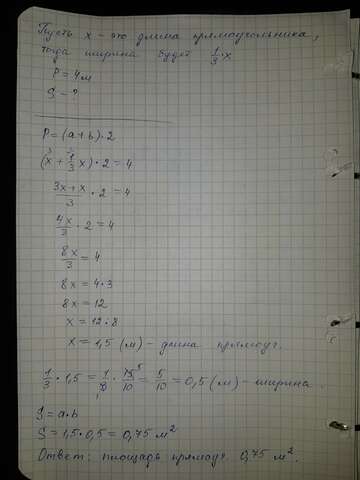 Пусть x - это длина прямоугольника,
тогда ширина будет 1/3·x
P = 4м
S - ?
P = (a+b)·2
(x + 1/3 x)·2 = 4
3x+x/3 · 2 = 4
4x/3 · 2 = 4
8x/3 = 4
8x = 4·3
8x = 12
x = 12·8
x = 1,5 (м) - длина прямоуг.
1/3 · 1,5 = 1/3 · 15/10 = 5/10 = 0,5 (м) - ширина.
S = a·b
S = 1,5·0,5 = 0,75 м²
Ответ: площадь прямоуг. 0,75 м².